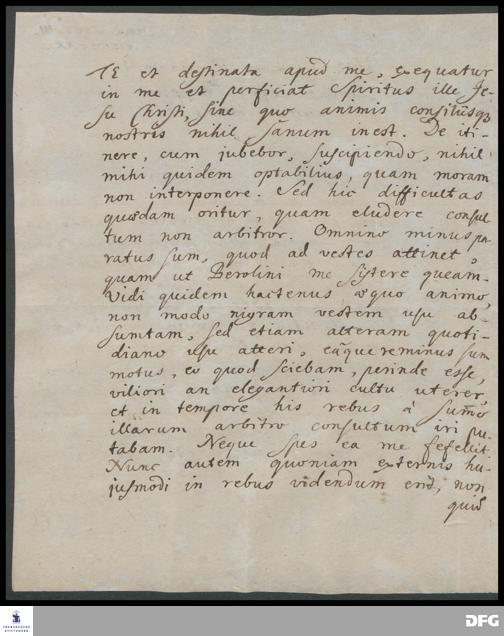 TE et destinata apud me, exequatur
in me et perficiat Spiritus ille Je-
su Christi, sine quo animis consiliisq3
nostris nihil sanum inest. De iti-
nere, cum jubebor, suscipiendo, nihil
mihi quidem optabilius, quam moram
non interponere. Sed hic difficultas
quædam oritur, quam eludere consul
tum non arbitror. Omnino minus pa-
ratus sum, quod ad vestes attinet,
quam ut Berolini me sistere queam.
Vidi quidem hactenus æquo animo,
non modo nigram vestem usu ab-
sumtam, sed etiam alteram quoti-
diano usu atteri, eâque re minus sum
motus, eo quod sciebam, perinde esse,
viliori an elegantiori cultu uterer,
et in tempore his rebus à sum̄o
illarum arbitro consultum iri pu-
tabam. Neque spes ea me fefellit.
Nunc autem quoniam externis hu-
jusmodi in rebus videndum erit, non
quid
FRANCKESCHE
STIFTUNGEN
DFG